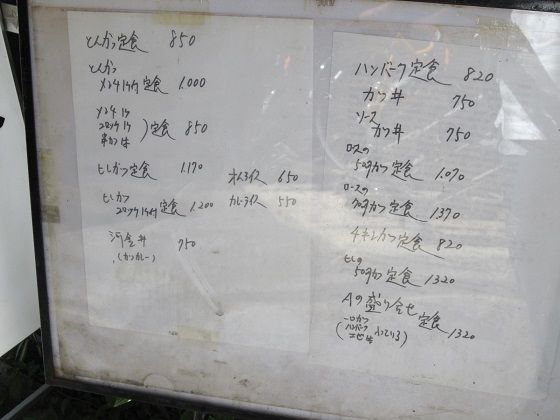 とんかつ定食 850
とんかつ
メンチ1ケ付定食 1.000
メンチ1ケ
コロッケ1ケ
串かつ1本
)定食 850
ヒレカツ定食 1.170
ヒレカツ
コロッケ1ケ付定食 1.200
オムライス 650
カレーライス 550
河金丼 750
(カツカレー)
ハンバーグ定食 820
カツ丼 750
ソース
カツ丼 750
ロースの
50匁カツ定食 1.070
ロースの
70匁カツ定食 1370
チキンカツ定食 820
ヒレの
50匁カツ定食 1320
Aの盛り合せ定食 1320
一口カツ
ハンバーグ
エビ1本